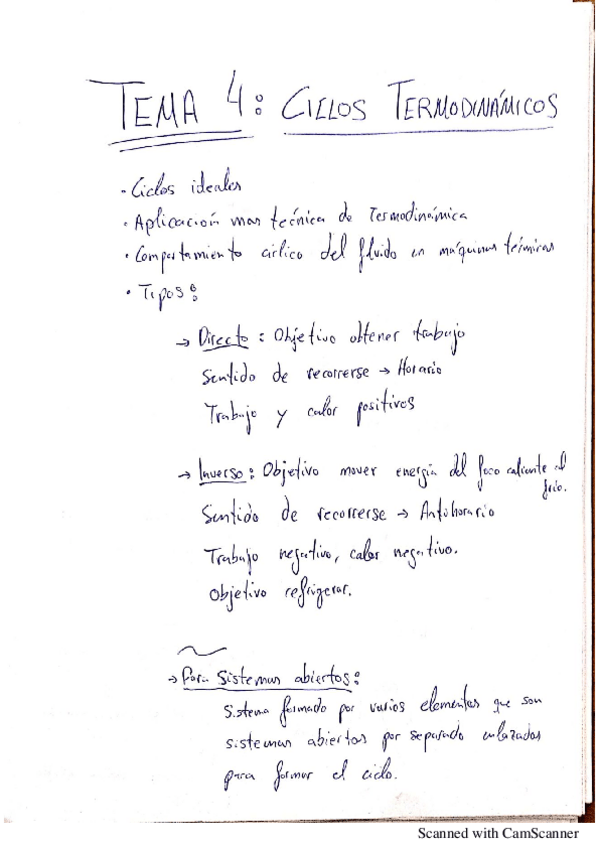 TEMA 4: CICLOS TERMODINÁMICOS
· Ciclos ideales
· Aplicación mas técnica de Termodinámica
· Comportamiento cíclico del fluido en máquinas térmicas
· Tipos:
→ Directo: Objetivo obtener trabajo
Sentido de recorrerse → Horario
Trabajo y calor positivos
→ Inverso: Objetivo mover energía del foco caliente al
frío.
Sentido de recorrerse → Antihorario
Trabajo negativo, calor negativo.
Objetivo refrigerar.
→ Para sistemas abiertos:
Sistema formado por varios elementos que son
sistemas abiertos por separado enlazados
para formar el ciclo.
Scanned with CamScanner